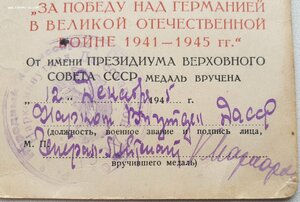 „ЗА ПОБЕДУ НАД ГЕРМАНИЕЙ
В ВЕЛИКОЙ ОТЕЧЕСТВЕННОЙ
ВОЙНЕ 1941—1945 гг.“
От имени ПРЕЗИДИУМА ВЕРХОВНОГО
СОВЕТА СССР МЕДАЛЬ ВРУЧЕНА
"12" Декабря 1945
Нарком Внутдел ДАССР
(должность, военное звание и подпись лица,
М. П. Генерал-Лейтенант
вручившего медаль)